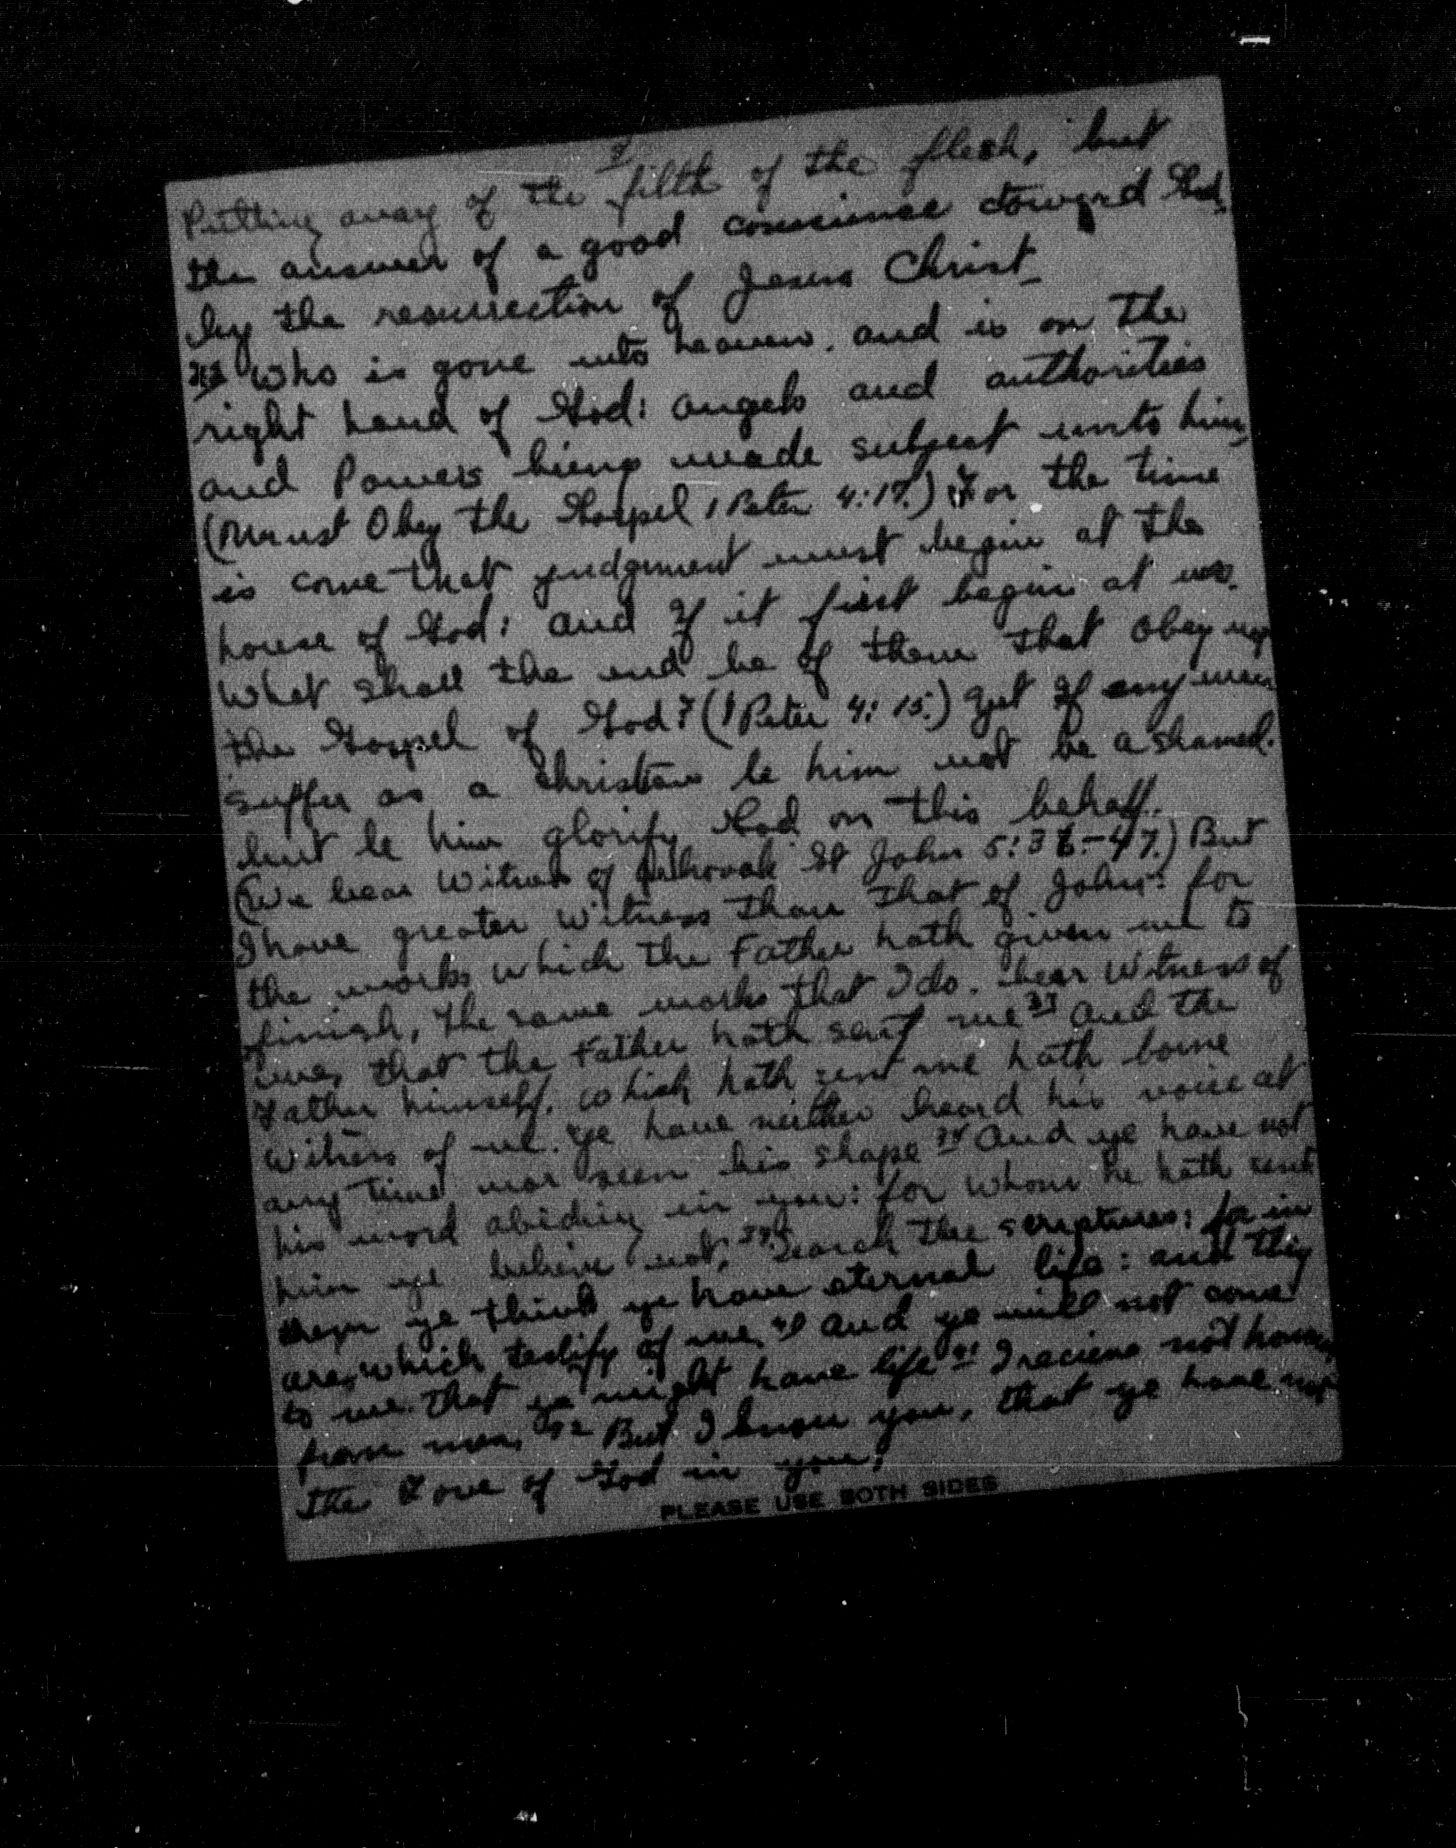 3
Putting away of the filth of the flesh, but
the answer of a good conscience toward God,
by the resurrection of Jesus Christ
22 Who is gone into heaven. and is on the
right hand of God: angels and authorities
and Powers being made subject unto him,
(Must Obey the Gospel 1 Peter 4:17.) For the time
is come that judgment must begin at the
house of God: and If it first begin at us.
What shall the end be of them that obey not
the Gospel of God? (1 Peter 4:15.) yet If any man
suffer as a christian le him not be ashamed.
but le him glorify God on this behalf.
(We bear Witness of Jehovah St John 5:36-47.) But
I have greater Witness than that of John: for
the works which the Father hath given me to
finish, the same works that I do. bear Witness of
me, that the Father hath sent me 37 And the
Father himself, which hath sent me hath borne
Witness of me. Ye have neither heard his voice at
any time nor seen his shape 38 And ye have not
his word abiding in you: for whom he hath sent
him ye believe not, 39 Search the scriptures: for in
them ye think ye have eternal life: and they
are, which testify of me, 40 And ye will not come
to me. that ye might have life 41 I recieve not honor
from men, 42 But I know you, that ye have not
the Love of God in you;
PLEASE USE BOTH SIDES